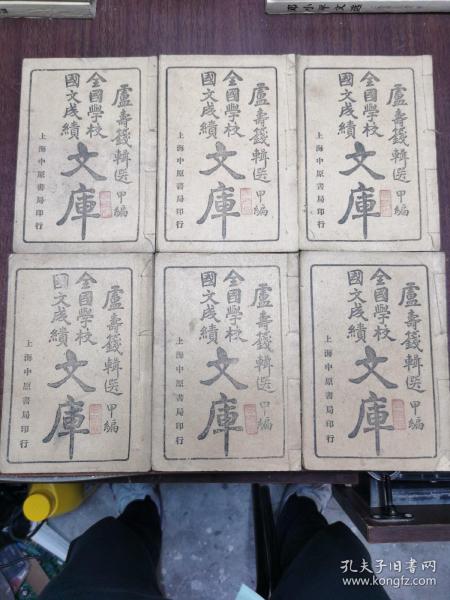 盧壽籛輯選 甲編
全國學校
國文成績
文庫
上海中原書局印行
盧壽籛輯選 甲編
全國學校
國文成績
文庫
上海中原書局印行
盧壽籛輯選 甲編
全國學校
國文成績
文庫
上海中原書局印行
盧壽籛輯選 甲編
全國學校
國文成績
文庫
上海中原書局印行
盧壽籛輯選 甲編
全國學校
國文成績
文庫
上海中原書局印行
盧壽籛輯選 甲編
全國學校
國文成績
文庫
上海中原書局印行
孔夫子旧书网
www.kongfz.com